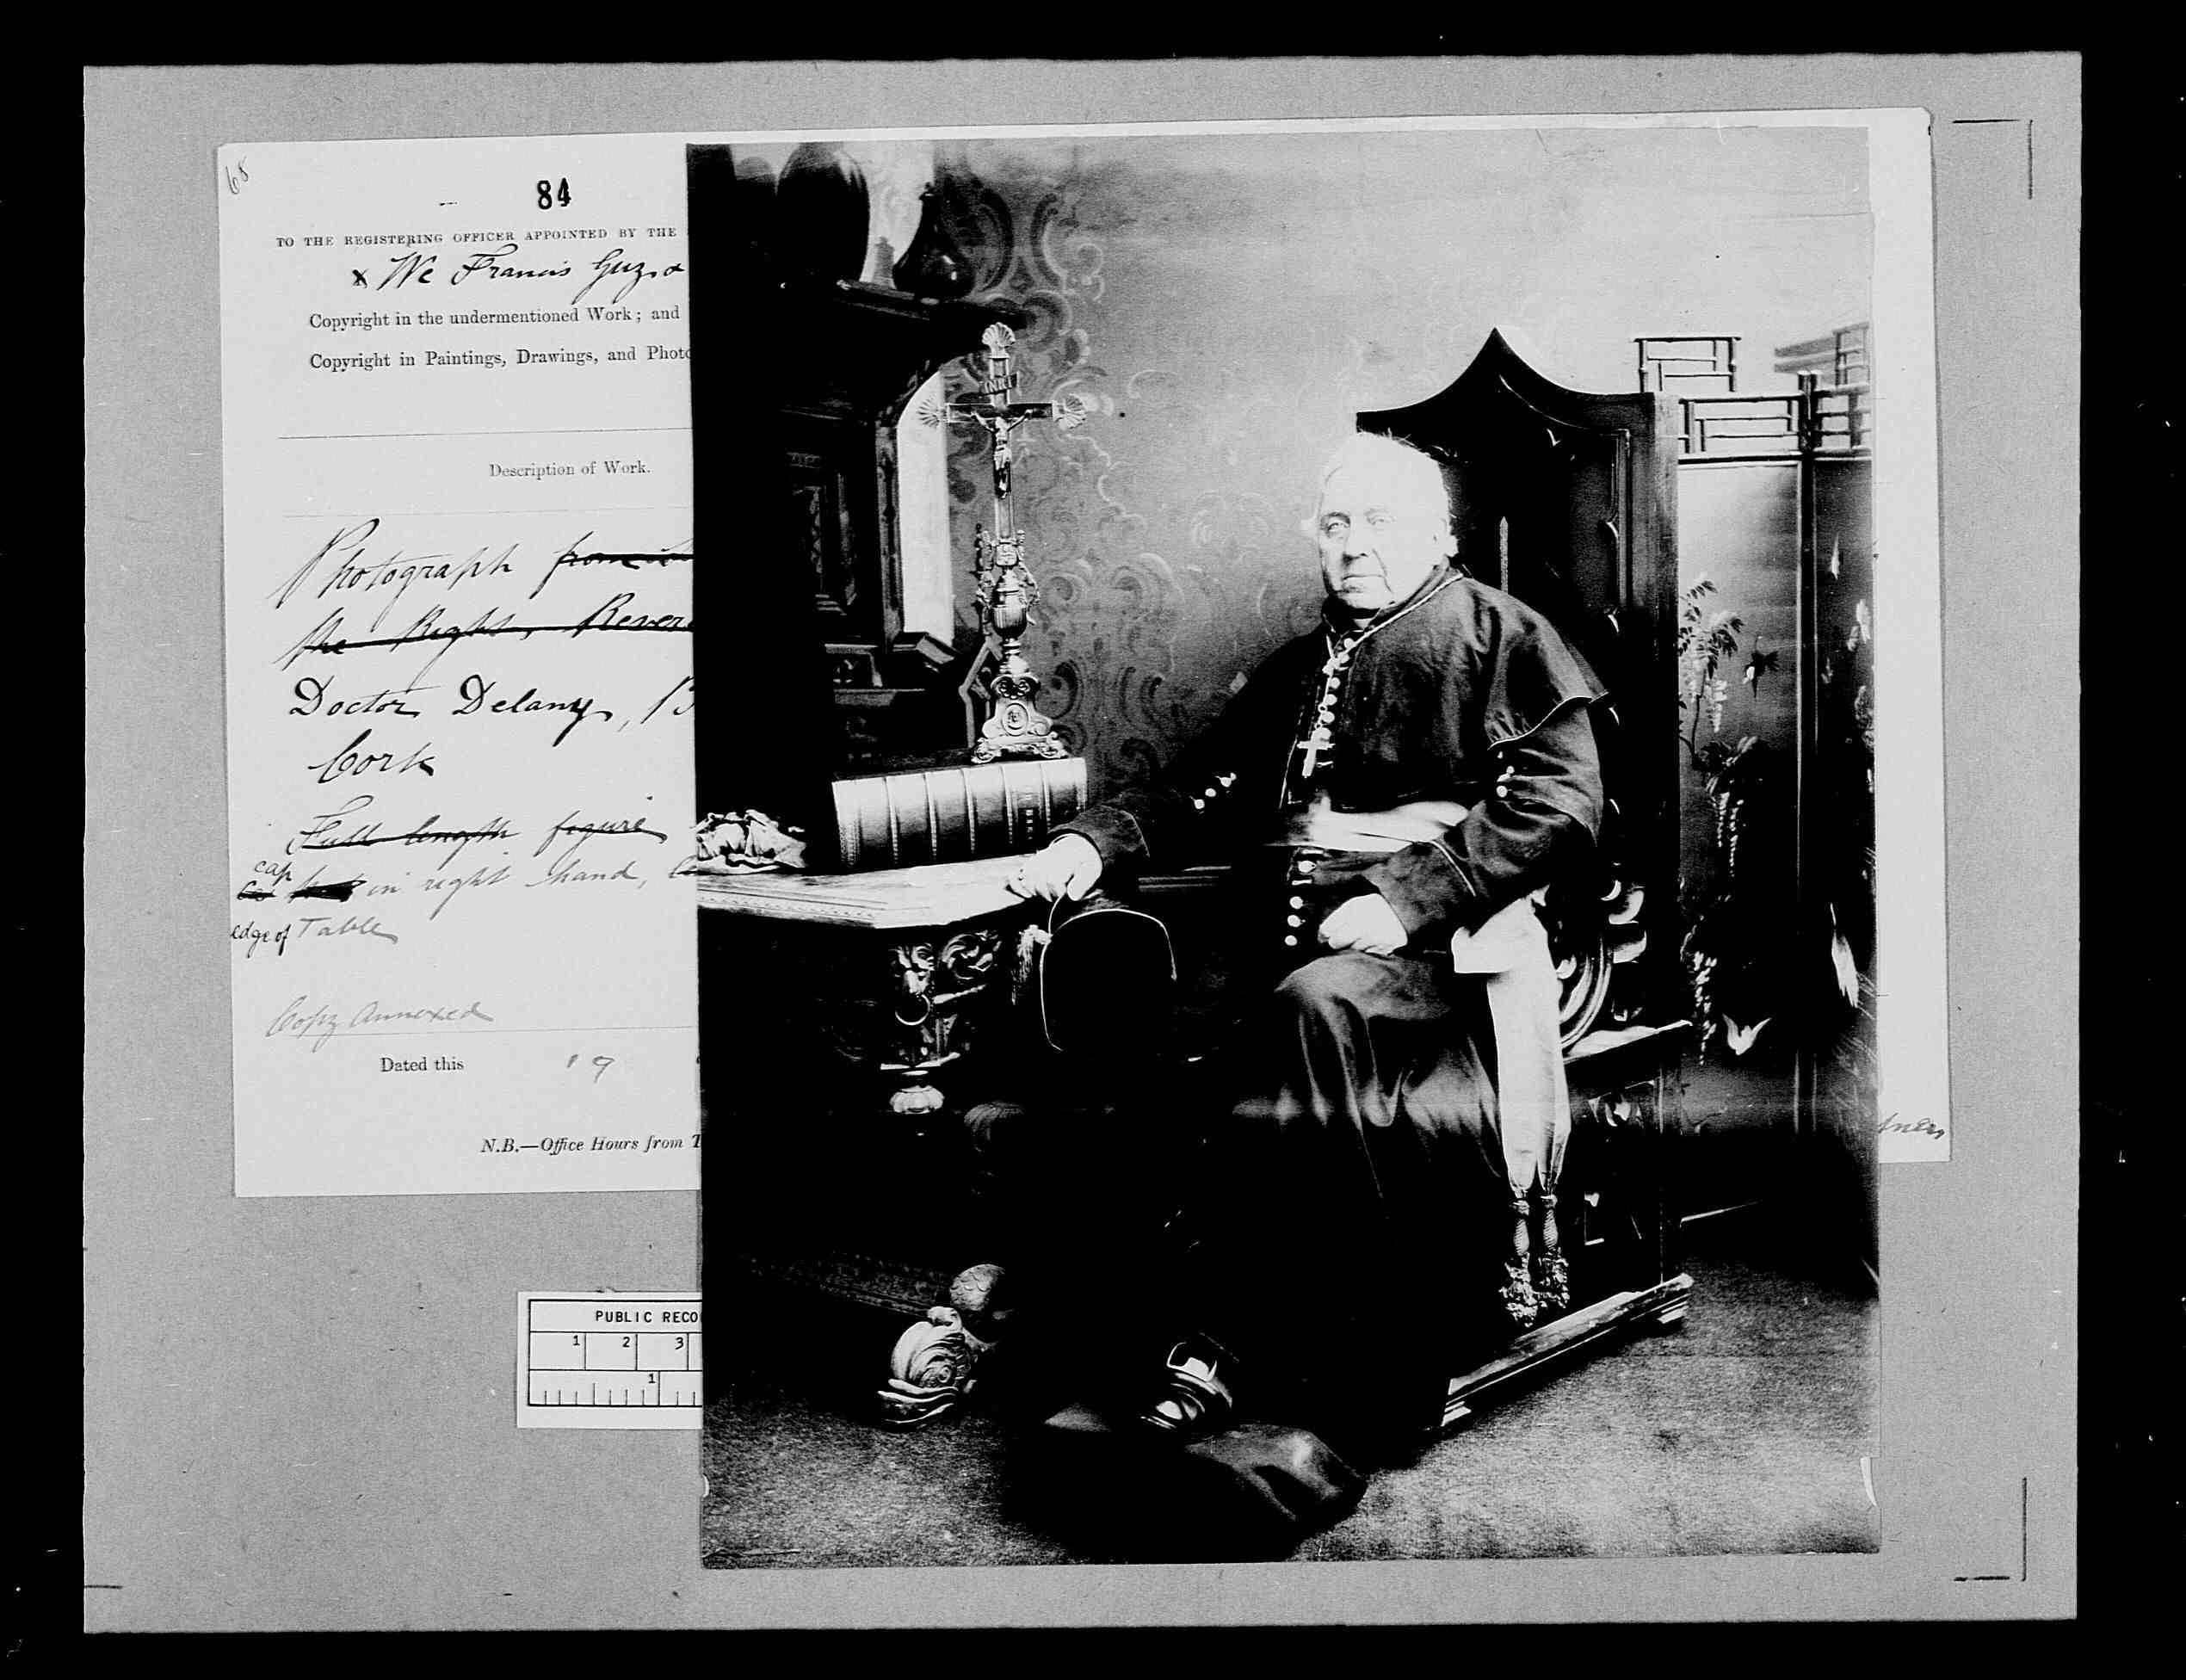 68
84
TO THE REGISTERING OFFICER APPOINTED BY THE
x We Francis Guy &
Copyright in the undermentioned Work; and
Copyright in Paintings, Drawings, and Photo
Description of Work.
Photograph from
the Right Rever
Doctor Delany, B
Cork
Full length figure
cap
in right hand,
edge of Table
Copy Annexed
Dated this 19
N.B.—Office Hours from T
PUBLIC RECO
1 2 3
1
INRI